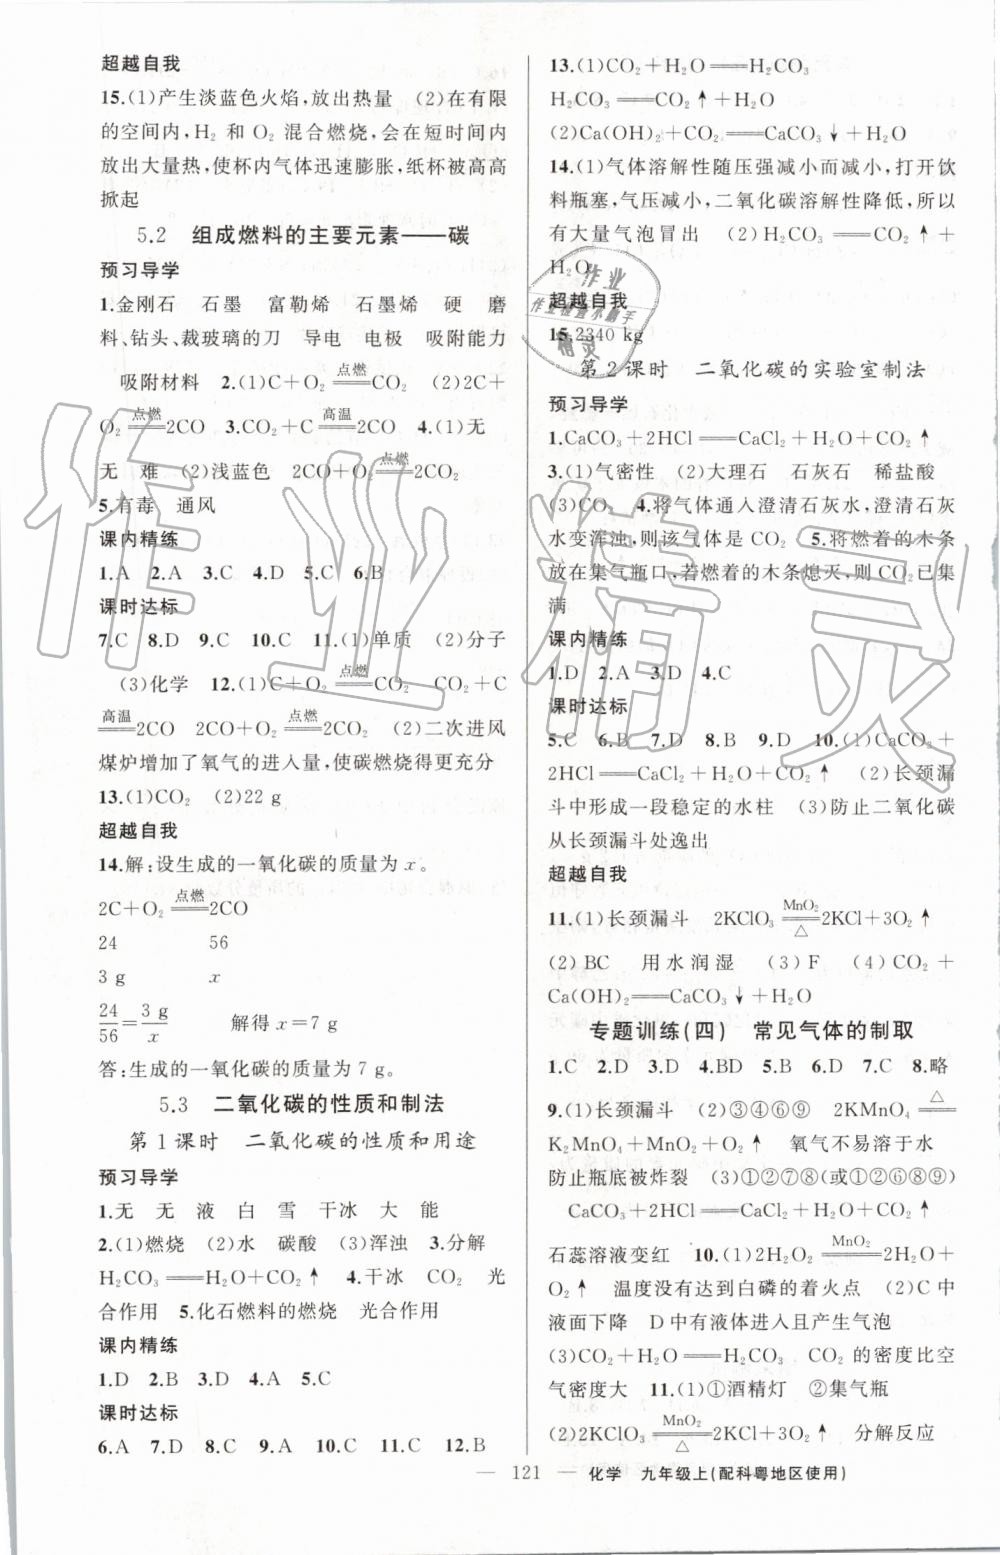 超越自我
15.(1)产生淡蓝色火焰,放出热量　(2)在有限
的空间内,H₂ 和 O₂ 混合燃烧,会在短时间内
放出大量热,使杯内气体迅速膨胀,纸杯被高高
掀起
5.2　组成燃料的主要元素——碳
预习导学
1.金刚石　石墨　富勒烯　石墨烯　硬　磨
料、钻头、裁玻璃的刀　导电　电极　吸附能力
吸附材料　2.(1)C+O₂ 点燃══ CO₂　(2)2C+
O₂ 点燃══ 2CO　3.CO₂+C 高温══ 2CO　4.(1)无
无　难　(2)浅蓝色　2CO+O₂ 点燃══ 2CO₂
5.有毒　通风
课内精练
1.A　2.A　3.C　4.D　5.C　6.B
课时达标
7.C　8.D　9.C　10.C　11.(1)单质　(2)分子
(3)化学　12.(1)C+O₂ 点燃══ CO₂　CO₂+C
高温══ 2CO　2CO+O₂ 点燃══ 2CO₂　(2)二次进风
煤炉增加了氧气的进入量,使碳燃烧得更充分
13.(1)CO₂　(2)22 g
超越自我
14.解:设生成的一氧化碳的质量为 x。
2C+O₂ 点燃══ 2CO
24　　　　56
3 g　　　　x
24/56=3 g/x　　解得 x=7 g
答:生成的一氧化碳的质量为 7 g。
5.3　二氧化碳的性质和制法
第 1 课时　二氧化碳的性质和用途
预习导学
1.无　无　液　白　雪　干冰　大　能
2.(1)燃烧　(2)水　碳酸　(3)浑浊　3.分解
H₂CO₃══H₂O+CO₂↑　4.干冰　CO₂　光
合作用　5.化石燃料的燃烧　光合作用
课内精练
1.D　2.B　3.D　4.A　5.C
课时达标
6.A　7.D　8.C　9.C　10.C　11.C　12.B
13.(1)CO₂+H₂O══H₂CO₃
H₂CO₃══CO₂↑+H₂O
(2)Ca(OH)₂+CO₂══CaCO₃↓+H₂O
14.(1)气体溶解性随压强减小而减小,打开饮
料瓶塞,气压减小,二氧化碳溶解性降低,所以
有大量气泡冒出　(2)H₂CO₃══CO₂↑+
H₂O
超越自我
15.2340 kg
第 2 课时　二氧化碳的实验室制法
预习导学
1.CaCO₃+2HCl══CaCl₂+H₂O+CO₂↑
3.(1)气密性　(2)大理石　石灰石　稀盐酸
(3)CO₂　4.将气体通入澄清石灰水,澄清石灰
水变浑浊,则该气体是 CO₂　5.将燃着的木条
放在集气瓶口,若燃着的木条熄灭,则 CO₂已集
满
课内精练
1.D　2.A　3.D　4.C
课时达标
5.C　6.B　7.D　8.B　9.D　10.(1)CaCO₃+
2HCl══CaCl₂+H₂O+CO₂↑　(2)长颈漏
斗中形成一段稳定的水柱　(3)防止二氧化碳
从长颈漏斗处逸出
超越自我
11.(1)长颈漏斗　2KClO₃ MnO₂══△ 2KCl+3O₂↑
(2)BC　用水润湿　(3)F　(4)CO₂+
Ca(OH)₂══CaCO₃↓+H₂O
专题训练(四)　常见气体的制取
1.C　2.D　3.D　4.BD　5.B　6.D　7.C　8.略
9.(1)长颈漏斗　(2)③④⑥⑨　2KMnO₄ △══
K₂MnO₄+MnO₂+O₂↑　氧气不易溶于水
防止瓶底被炸裂　(3)①②⑦⑧(或①②⑥⑧⑨)
CaCO₃+2HCl══CaCl₂+H₂O+CO₂↑
石蕊溶液变红　10.(1)2H₂O₂ MnO₂══ 2H₂O+
O₂↑　温度没有达到白磷的着火点　(2)C 中
液面下降　D 中有液体进入且产生气泡
(3)CO₂+H₂O══H₂CO₃　CO₂ 的密度比空
气密度大　11.(1)①酒精灯　②集气瓶
(2)2KClO₃ MnO₂══△ 2KCl+3O₂↑　分解反应
— 121 —　化学　九年级上(配科粤地区使用)
作业精灵
作业
作业检查小助手
精灵